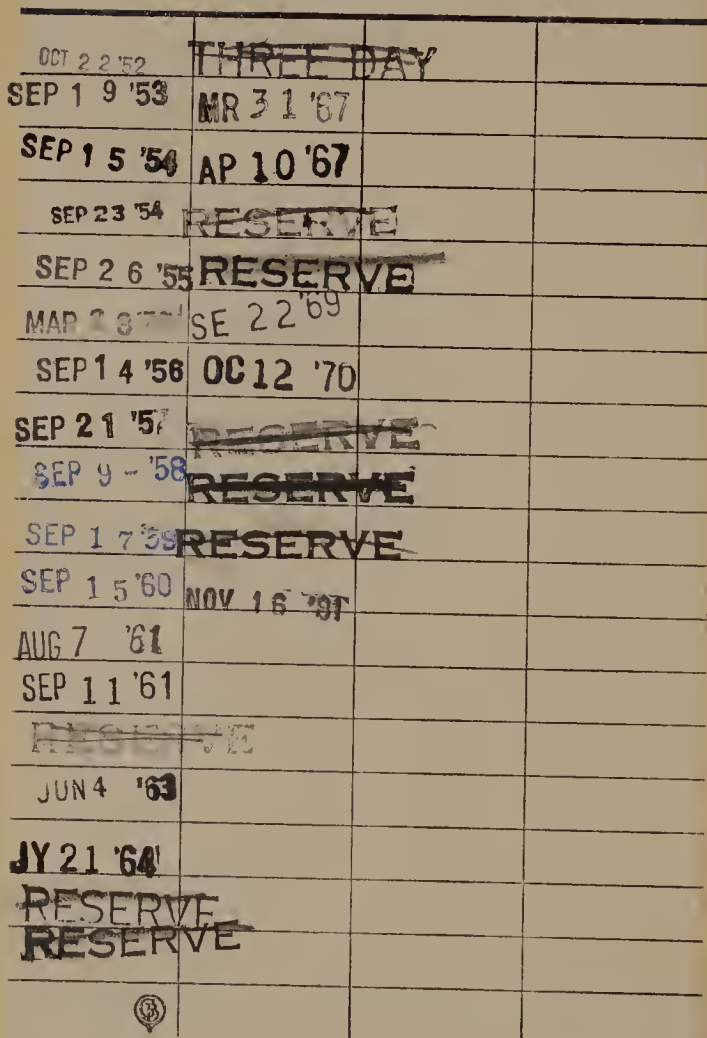 OCT 22 '52
SEP 19 '53
SEP 15 '54
SEP 23 '54
SEP 26 '55
MAR
SEP 14 '56
SEP 21 '57
SEP 9 - '58
SEP 17 '59
SEP 15 '60
AUG 7 '61
SEP 11 '61
RESERVE
JUN 4 '63
JY 21 '64
RESERVE
RESERVE
THREE DAY
MR 31 '67
AP 10 '67
RESERVE
RESERVE
SE 22 '69
OC 12 '70
RESERVE
RESERVE
RESERVE
NOV 16